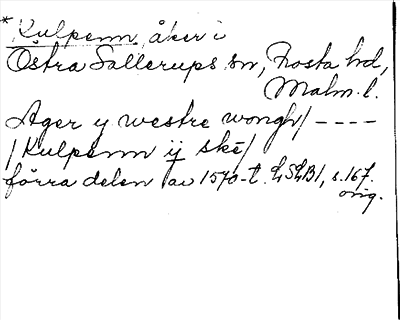 * Kulpenn, åker i
Östra Sallerups sn, Frosta hd,
Malm. l.
Ager y westre wongh / ----
/ Kulpenn ij ske /
förra delen av 1570-t. LSLB1, s. 167.
orig.